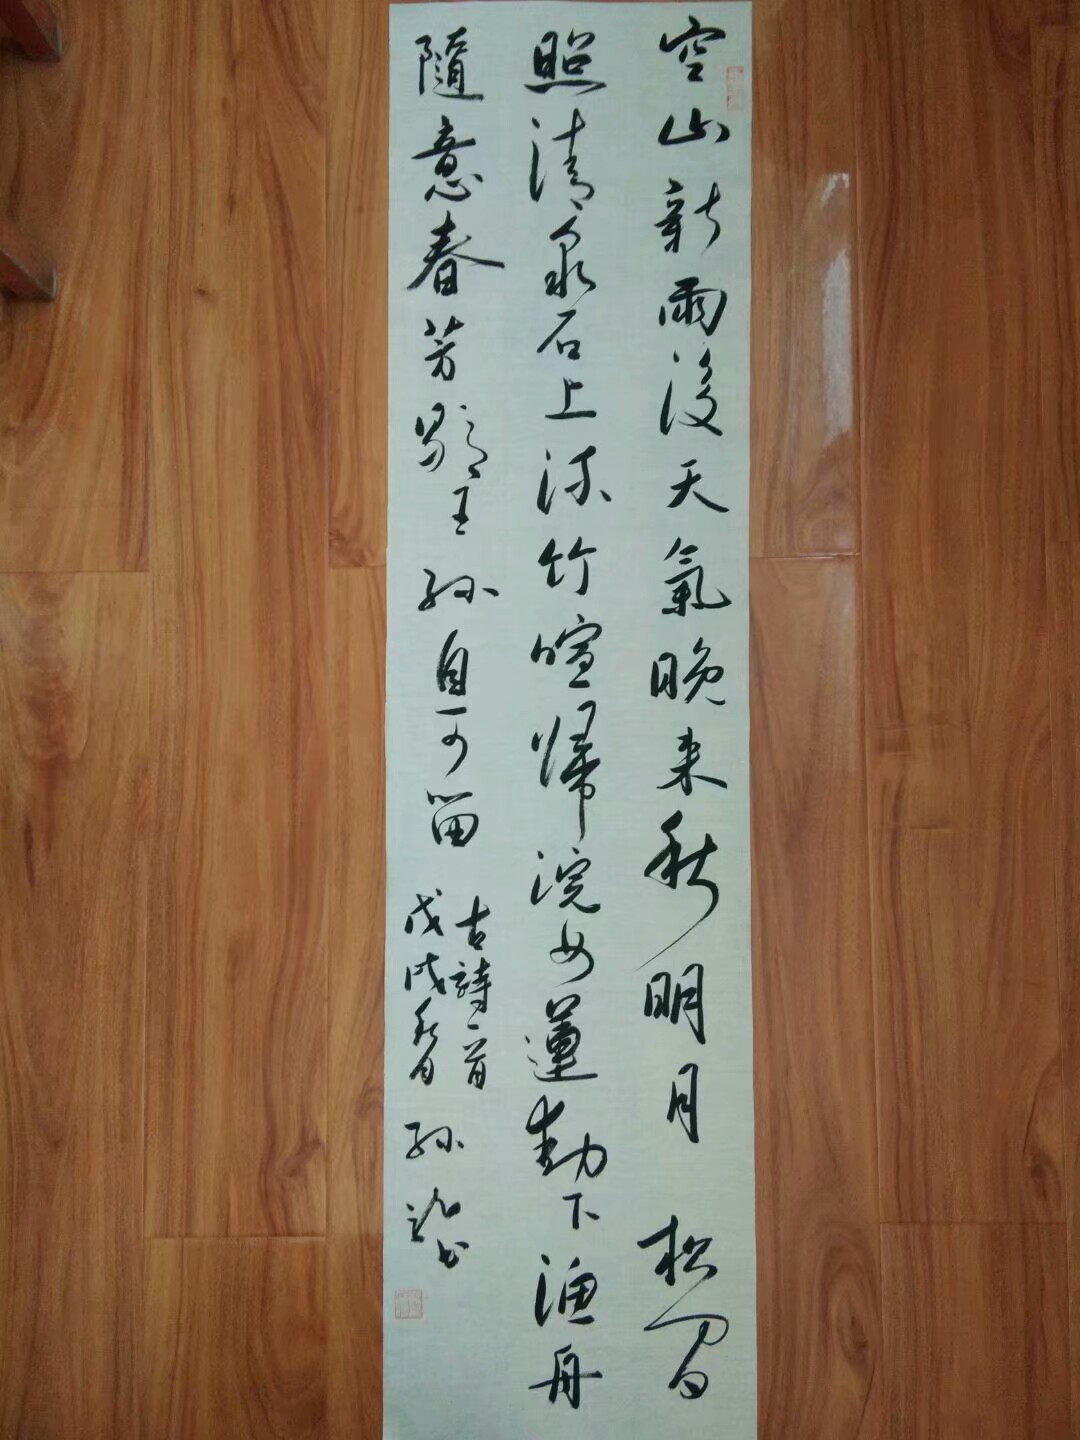 空山新雨後天氣晚来秋明月松間
照清泉石上流竹喧歸浣女蓮動下渔舟
隨意春芳歇王孫自可留
古詩一首
戊戌春月孫